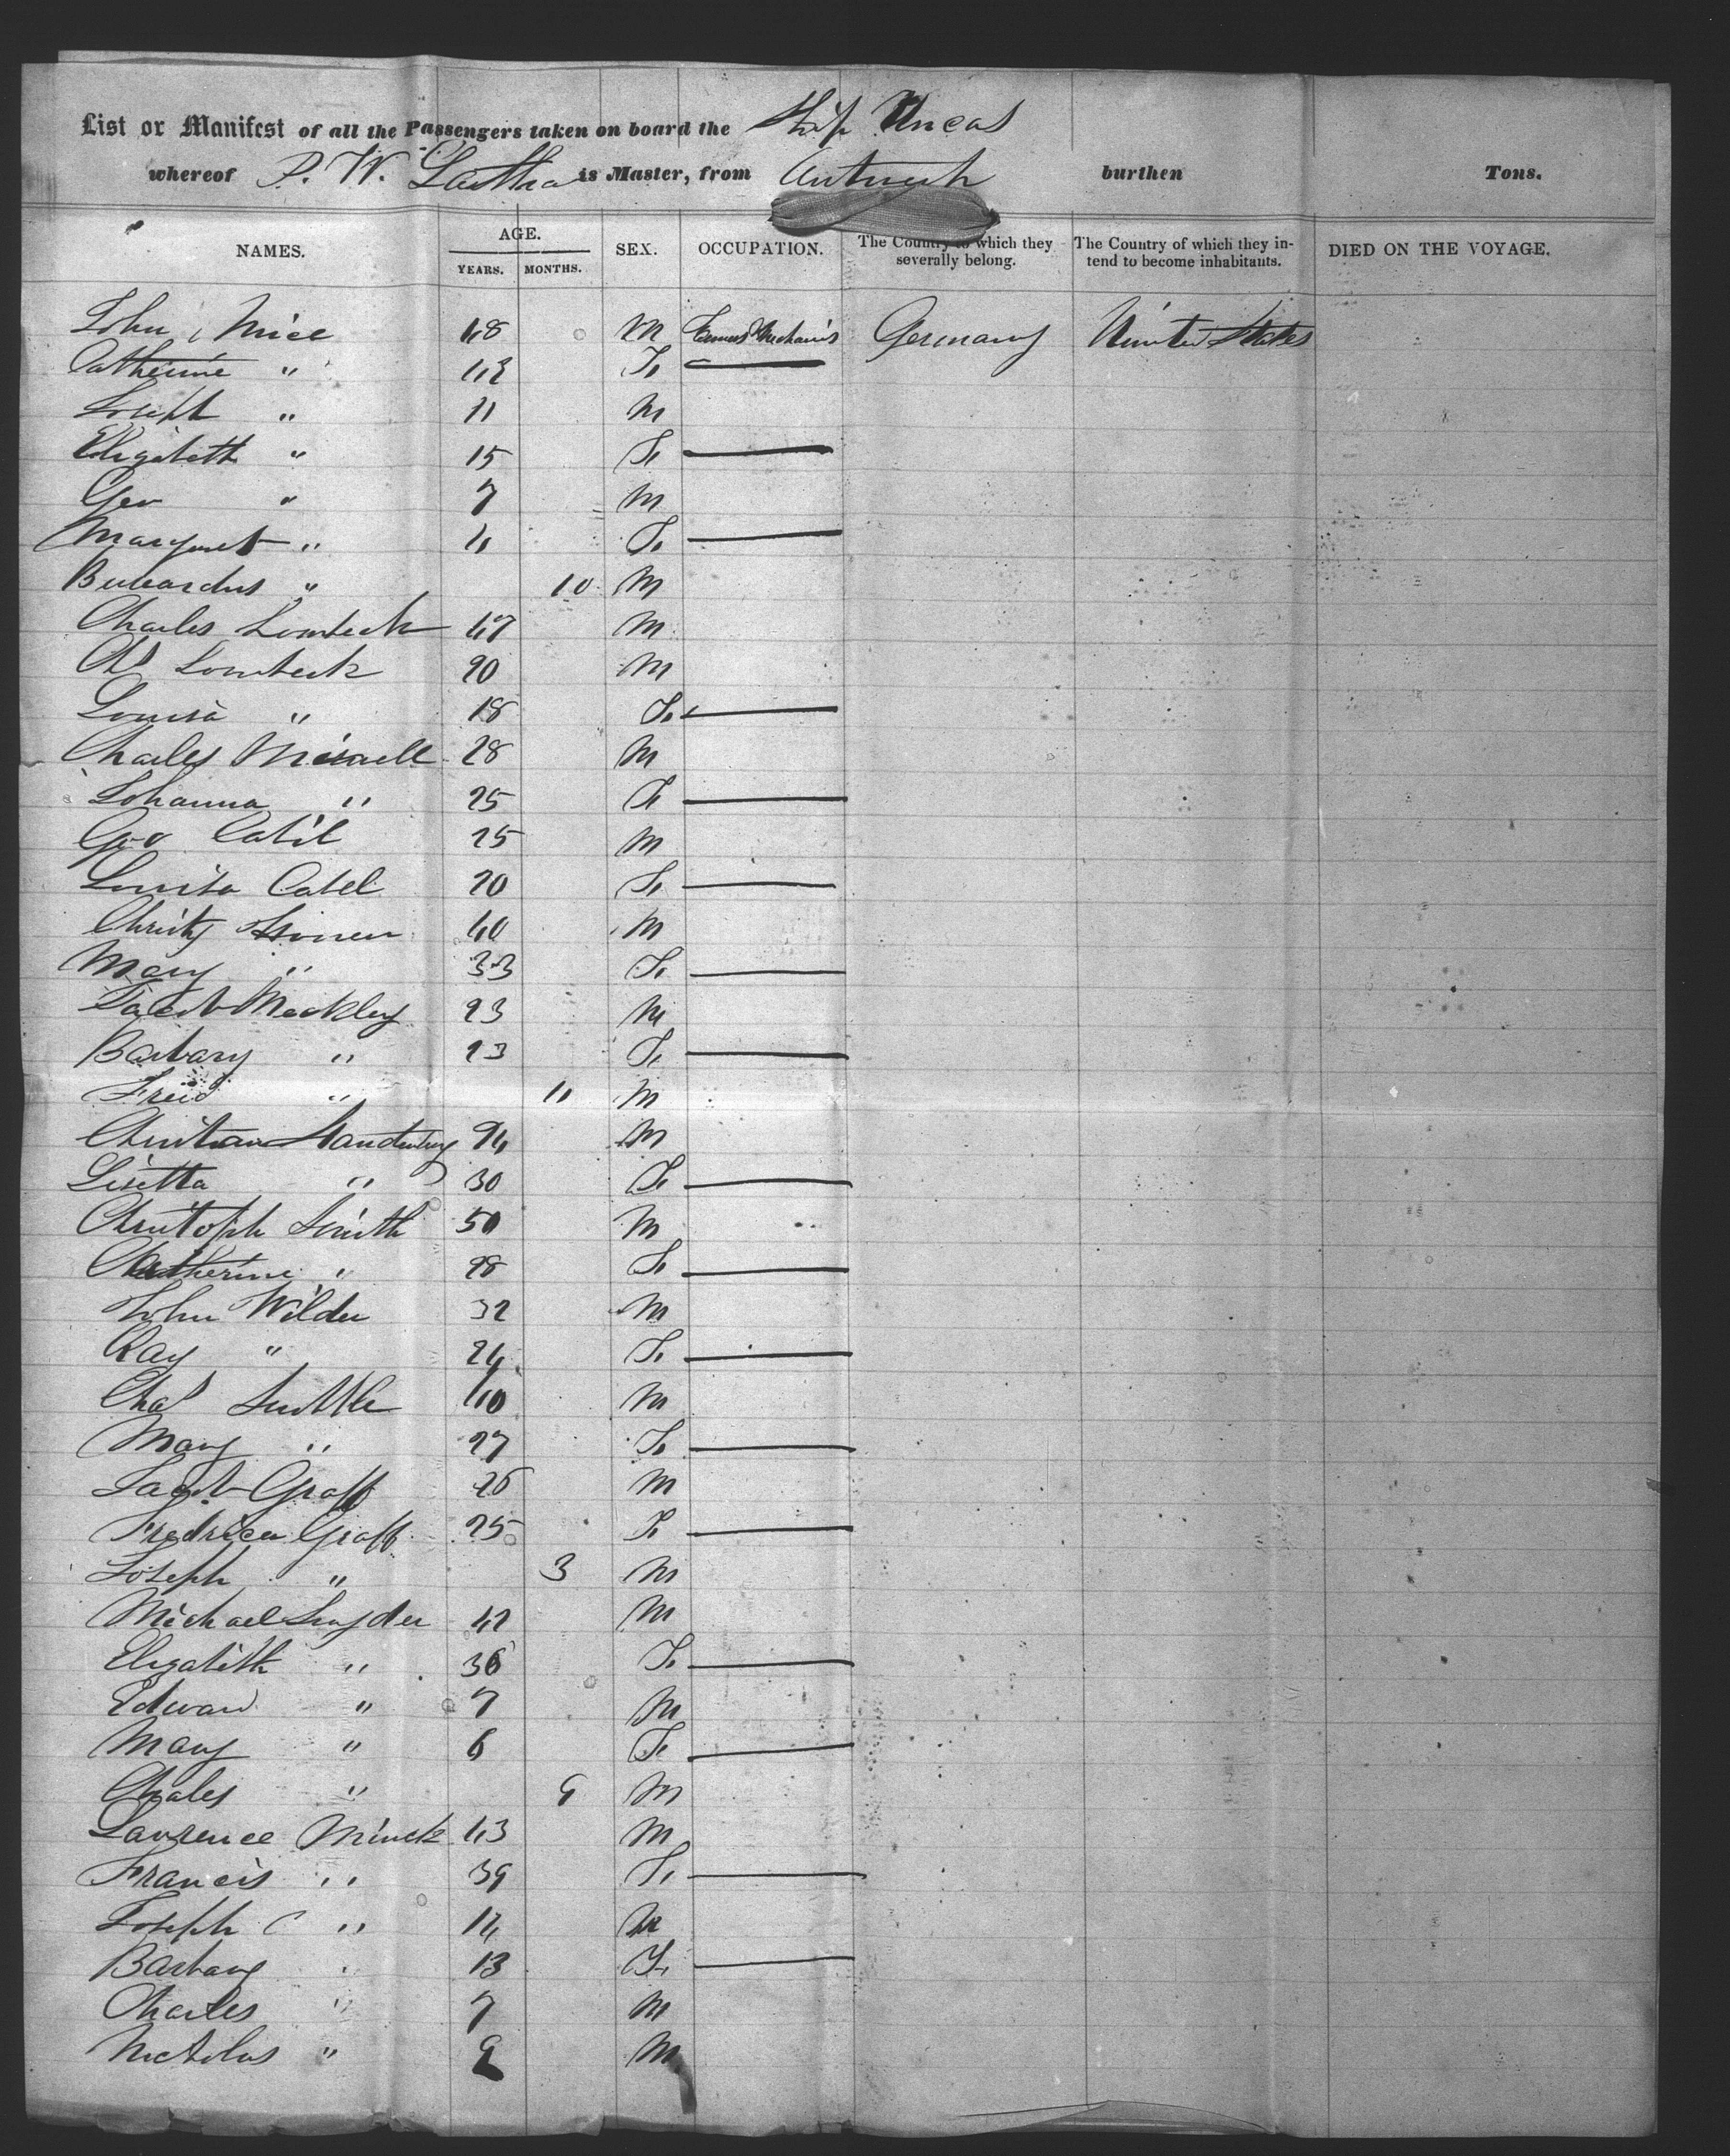 List or Manifest of all the Passengers taken on board the Ship Uncas
whereof P. W. is Master, from Antwerp burthen Tons.
NAMES. AGE. YEARS. MONTHS. SEX. OCCUPATION. The Country to which they severally belong. The Country of which they intend to become inhabitants. DIED ON THE VOYAGE.
John Mice 48 M Farmers & Mechanics Germany United States
Catherine " 42 F.
Joseph " 11 M
Elizabeth " 15 F.
Geo " 7 M
Margaret " 4 F.
" 10 M
Charles Lombeck 47 M
Ch Lombeck 20 M
Louisa " 18 F.
Charles 28 M
Johanna " 25 F.
Geo Catil 25 M
Louisa Catel 20 F.
40 M
Mary " 33 F.
Jacob Meckley 23 M
Barbary " 23 F.
Fred " 11 M
Christian 24 M
Lisetta " 30 F.
Christoph Smith 50 M
Catherine " 28 F.
John Wilder 32 M
" 24 F.
Chas 40 M
Mary " 27 F.
Jacob Graff 26 M
Fredrica Graff 25 F.
Joseph " 3 M
Michael Snyder 42 M
Elizabeth " 36 F.
Edward " 7 M
Mary " 6 F.
Chales " 9 M
Lawrence Minck 43 M
Francis " 39 F.
Joseph C " 14 M
Barbary " 13 F.
Charles " 7 M
Nicholas " M